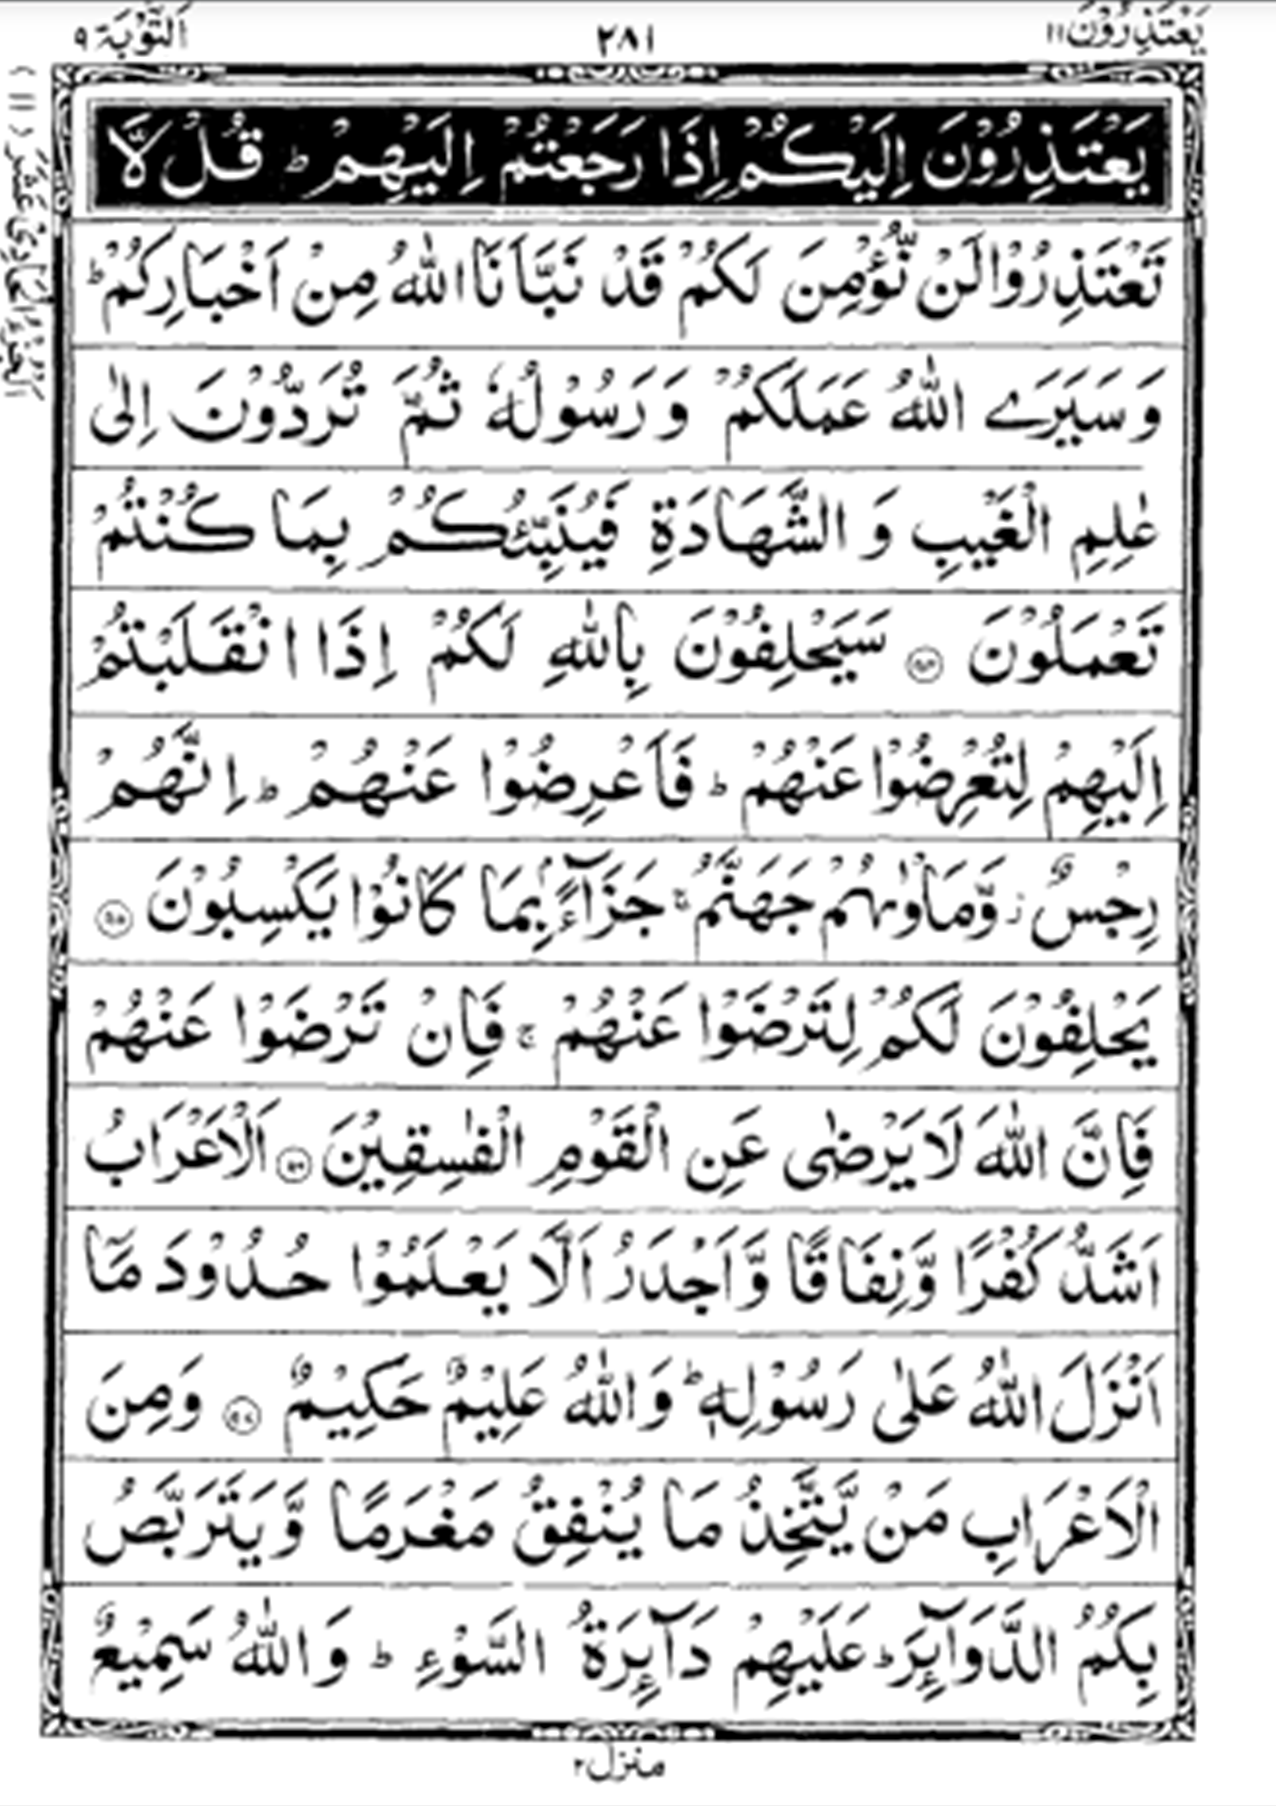 يَعْتَذِرُوْنَ ١١ ٢٨١ اَلتَّوْبَة ٩
يَعْتَذِرُوْنَ اِلَيْكُمْ اِذَا رَجَعْتُمْ اِلَيْهِمْ ؕ قُلْ لَّا
تَعْتَذِرُوْا لَنْ نُّؤْمِنَ لَكُمْ قَدْ نَبَّاَنَا اللّٰهُ مِنْ اَخْبَارِكُمْ ؕ
وَ سَيَرَى اللّٰهُ عَمَلَكُمْ وَ رَسُوْلُهٗ ثُمَّ تُرَدُّوْنَ اِلٰى
عٰلِمِ الْغَيْبِ وَ الشَّهَادَةِ فَيُنَبِّئُكُمْ بِمَا كُنْتُمْ
تَعْمَلُوْنَ ﴿۹۴﴾ سَيَحْلِفُوْنَ بِاللّٰهِ لَكُمْ اِذَا انْقَلَبْتُمْ
اِلَيْهِمْ لِتُعْرِضُوْا عَنْهُمْ ؕ فَاَعْرِضُوْا عَنْهُمْ ؕ اِنَّهُمْ
رِجْسٌ ز وَّمَاْوٰىهُمْ جَهَنَّمُ ۚ جَزَآءًۢ بِمَا كَانُوْا يَكْسِبُوْنَ ﴿۹۵﴾
يَحْلِفُوْنَ لَكُمْ لِتَرْضَوْا عَنْهُمْ ۚ فَاِنْ تَرْضَوْا عَنْهُمْ
فَاِنَّ اللّٰهَ لَا يَرْضٰى عَنِ الْقَوْمِ الْفٰسِقِيْنَ ﴿۹۶﴾ اَلْاَعْرَابُ
اَشَدُّ كُفْرًا وَّنِفَاقًا وَّاَجْدَرُ اَلَّا يَعْلَمُوْا حُدُوْدَ مَآ
اَنْزَلَ اللّٰهُ عَلٰى رَسُوْلِهٖ ؕ وَاللّٰهُ عَلِيْمٌ حَكِيْمٌ ﴿۹۷﴾ وَمِنَ
الْاَعْرَابِ مَنْ يَّتَّخِذُ مَا يُنْفِقُ مَغْرَمًا وَّيَتَرَبَّصُ
بِكُمُ الدَّوَآئِرَ ؕ عَلَيْهِمْ دَآئِرَةُ السَّوْءِ ؕ وَاللّٰهُ سَمِيْعٌ
منزل ٢
اَلْجُزْءُ الْحَادِيْ عَشَرَ (١١)